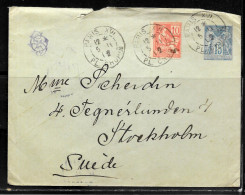 PARIS
10
15
Mme Scherdin
4. Tegnérlunden 4
Stockholm
Suède